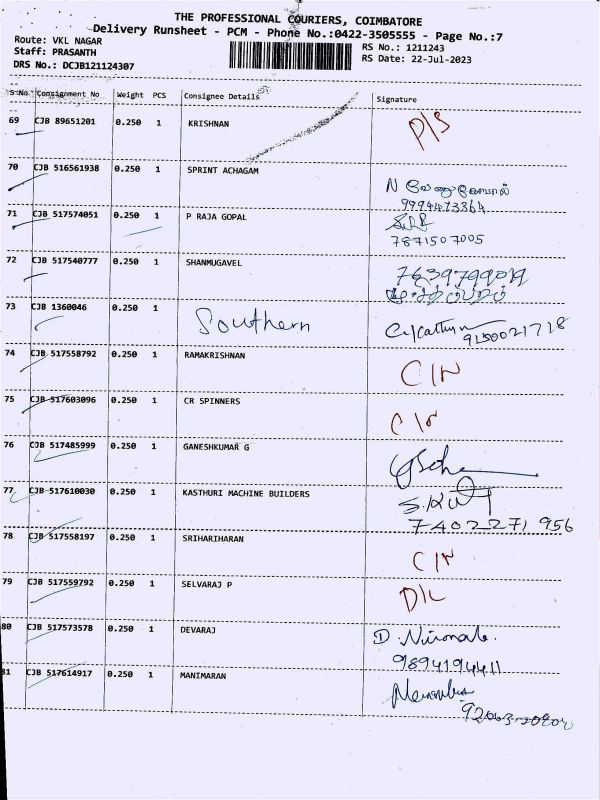 THE PROFESSIONAL COURIERS, COIMBATORE
Delivery Runsheet - PCM - Phone No.:0422-3505555 - Page No.:7
Route: VKL NAGAR
RS No.: 1211243
Staff: PRASANTH
RS Date: 22-Jul-2023
DRS No.: DCJB121124307
S No. Consignment No Weight PCS Consignee Details Signature
69 CJB 89651201 0.250 1 KRISHNAN P/S
70 CJB 516561938 0.250 1 SPRINT ACHAGAM N
9994473364
71 CJB 517574051 0.250 1 P RAJA GOPAL
7871507005
72 CJB 517540777 0.250 1 SHANMUGAVEL
73 CJB 1360046 0.250 1 Southern
9150021718
74 CJB 517558792 0.250 1 RAMAKRISHNAN C/N
75 CJB 517603096 0.250 1 CR SPINNERS C/N
76 CJB 517485999 0.250 1 GANESHKUMAR G
77 CJB 517610030 0.250 1 KASTHURI MACHINE BUILDERS
7402271956
78 CJB 517558197 0.250 1 SRIHARIHARAN C/N
79 CJB 517559792 0.250 1 SELVARAJ P D/L
80 CJB 517573578 0.250 1 DEVARAJ D.
9894194411
81 CJB 517614917 0.250 1 MANIMARAN